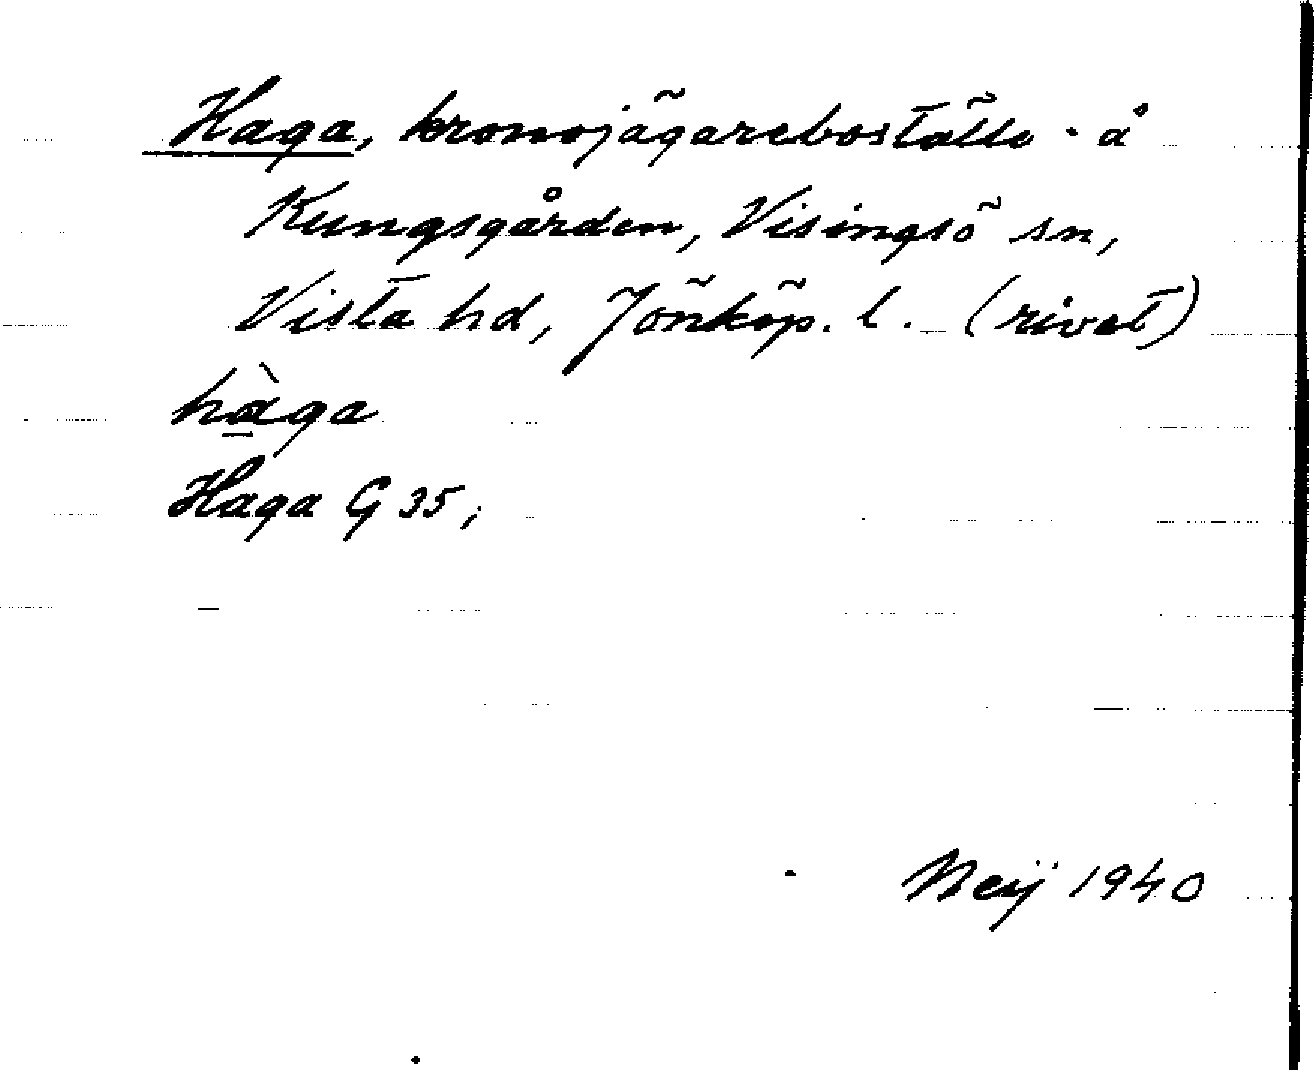 Haga, kronojägareboställe å
Kungsgården, Visingsö sn,
Vista hd, Jönköp. l. (rivet)
hàga
Haga G 35;
Neij 1940